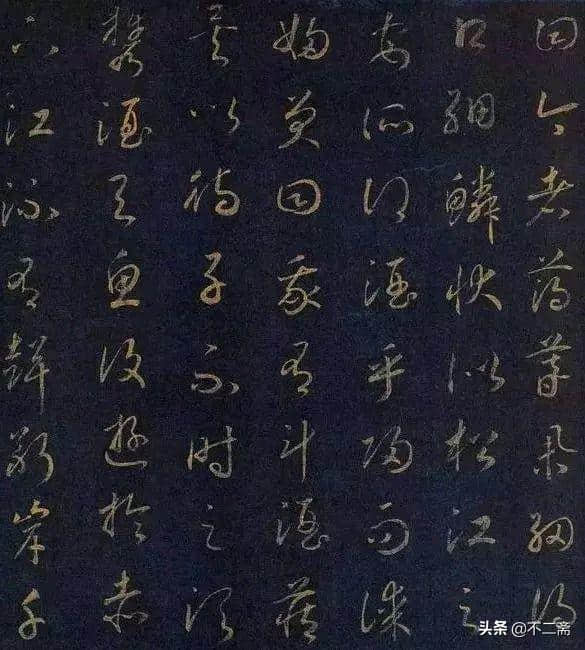 曰今者薄暮舉網得
口細鱗狀似松江之
安所得酒乎歸而謀
婦曰我有斗酒藏
矣以待子不時之須
攜酒與魚復遊於赤
下江流有聲斷岸千
头条 @不二斋